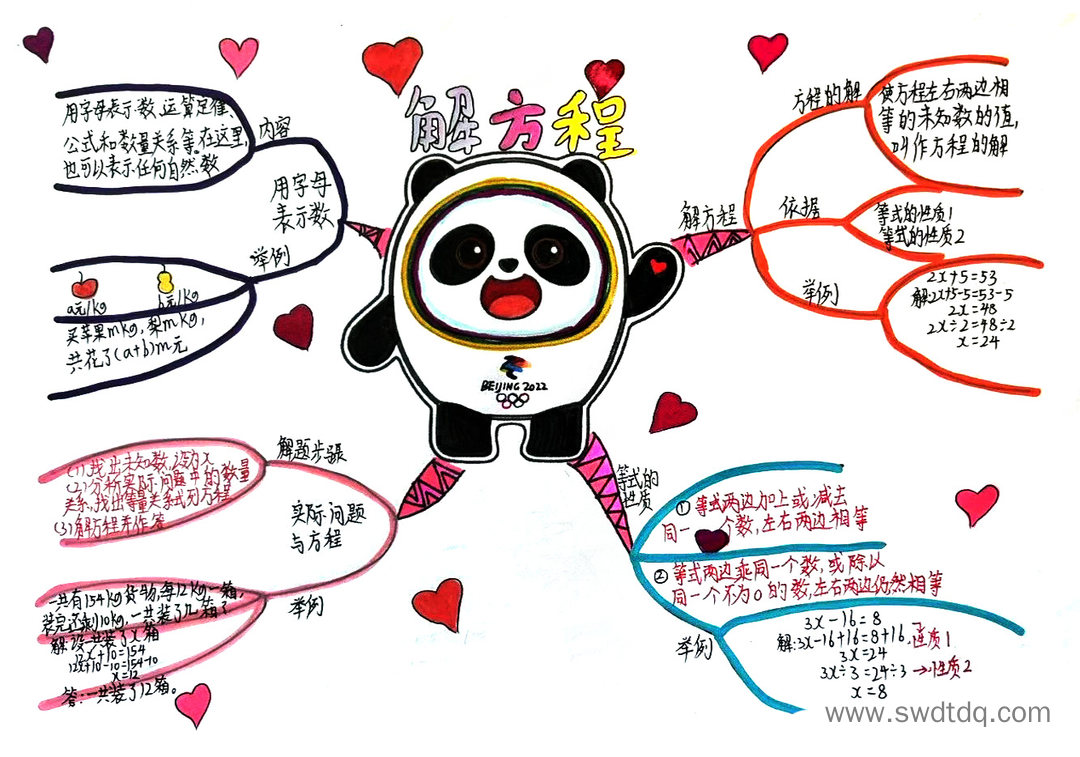 解方程
用字母表示数
内容
用字母表示数,运算定律、
公式和数量关系等,在这里,
也可以表示任何自然数
举例
a元/kg
b元/kg
买苹果mkg,梨mkg,
共花了(a+b)m元
解方程
方程的解
使方程左右两边相
等的未知数的值,
叫作方程的解
依据
等式的性质1
等式的性质2
举例
2x+5=53
解:2x+5-5=53-5
2x=48
2x÷2=48÷2
x=24
BEIJING 2022
实际问题
与方程
解题步骤
(1)找出未知数,设为x
(2)分析实际问题中的数量
关系,找出等量关系式列方程
(3)解方程并作答
举例
一共有154kg货物,每12kg一箱,
装完还剩10kg,一共装了几箱?
解:设共装了x箱
12x+10=154
12x+10-10=154-10
x=12
答:一共装了12箱。
等式的
性质
①等式两边加上或减去
同一个数,左右两边相等
②等式两边乘同一个数,或除以
同一个不为0的数,左右两边仍然相等
举例
3x-16=8
解:3x-16+16=8+16→性质1
3x=24
3x÷3=24÷3→性质2
x=8
www.swdtdq.com